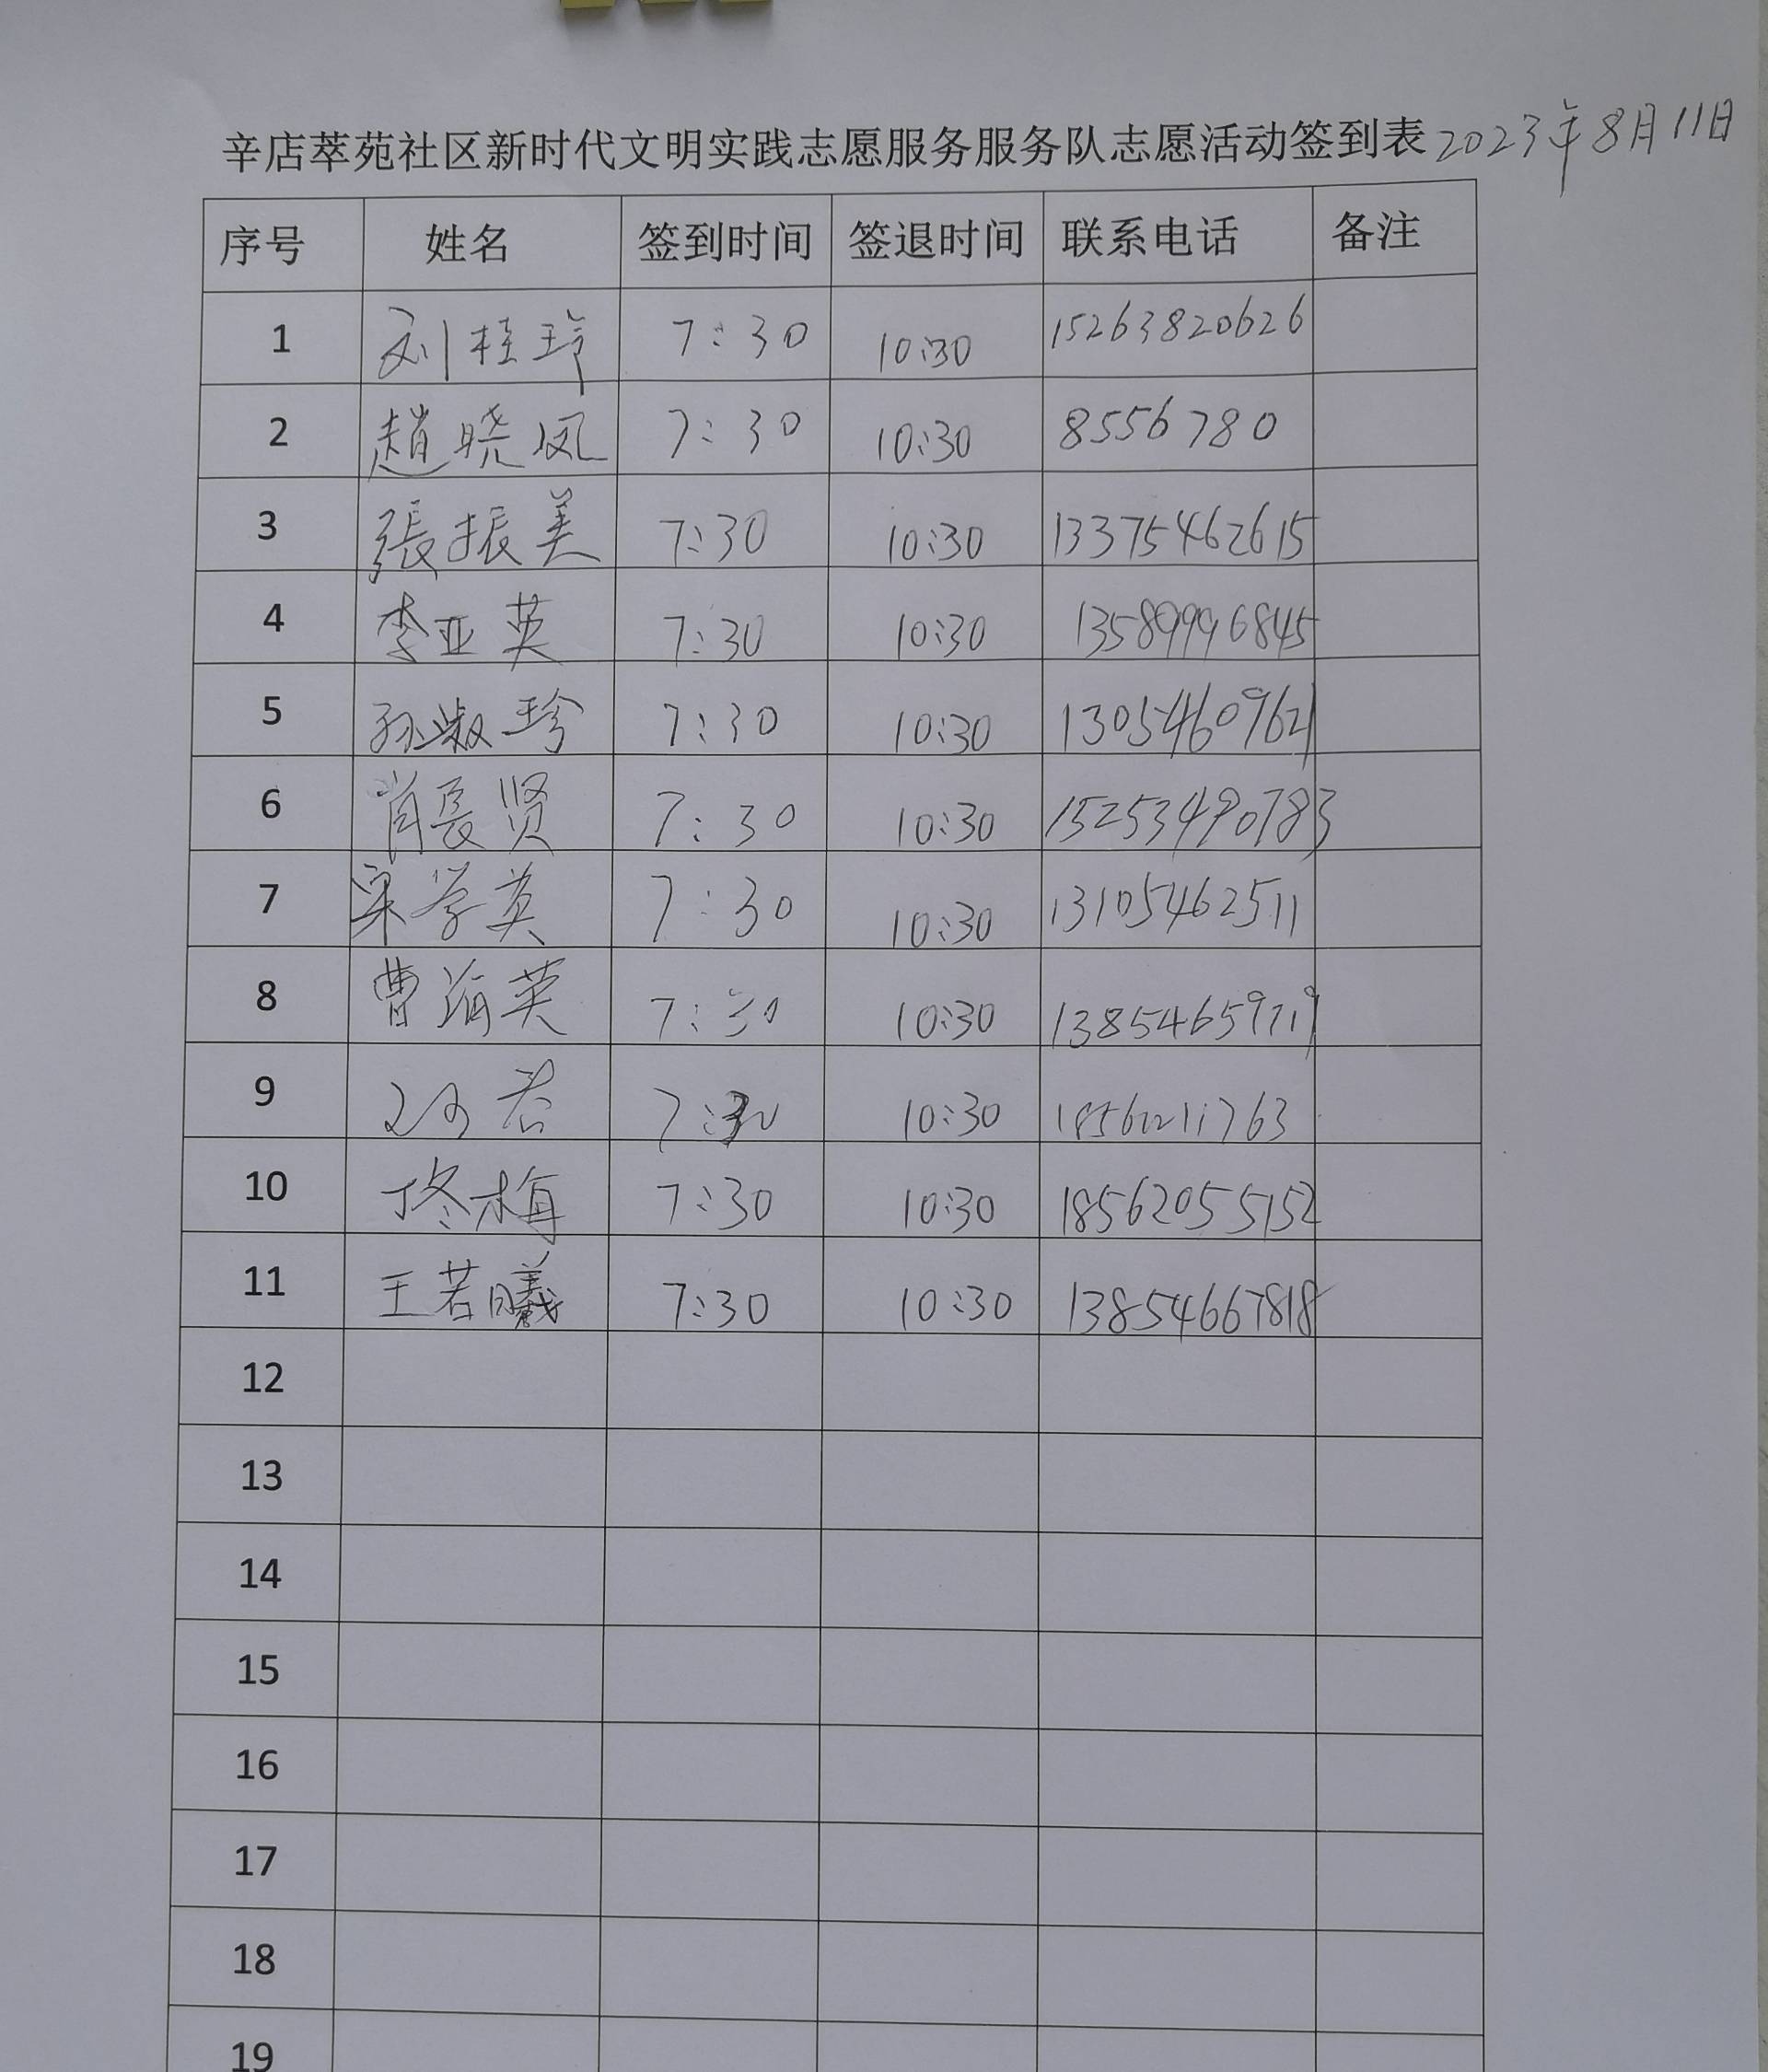 辛店萃苑社区新时代文明实践志愿服务服务队志愿活动签到表 2023年8月11日
序号 姓名 签到时间 签退时间 联系电话 备注
1 刘桂玲 7:30 10:30 15263820626
2 趙晓凤 7:30 10:30 8556780
3 張振美 7:30 10:30 13375462615
4 李亚英 7:30 10:30 13589996845
5 孙淑珍 7:30 10:30 13054609621
6 肖長贤 7:30 10:30 15253490783
7 宋学英 7:30 10:30 13105462511
8 曹海英 7:30 10:30 13854659719
9 7:30 10:30
10 佟梅 7:30 10:30 18562055152
11 王若曦 7:30 10:30 13854667818
12
13
14
15
16
17
18
19